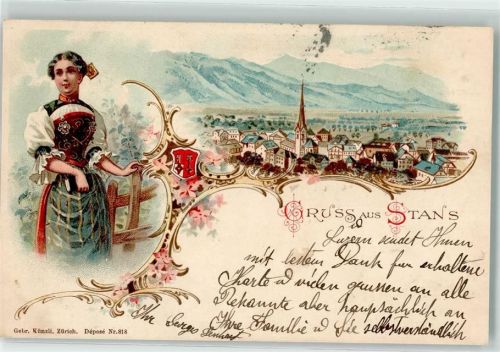 GRUSS AUS STANS
Luzern sendet Ihnen
mit bestem Dank für erhaltene
Karte u vielen grussen an alle
Bekannte aber hauptsächlich an
Ihre Familie u Sie selbstverständlich
Ihr
Gebr. Künzli, Zürich. Déposé Nr. 818